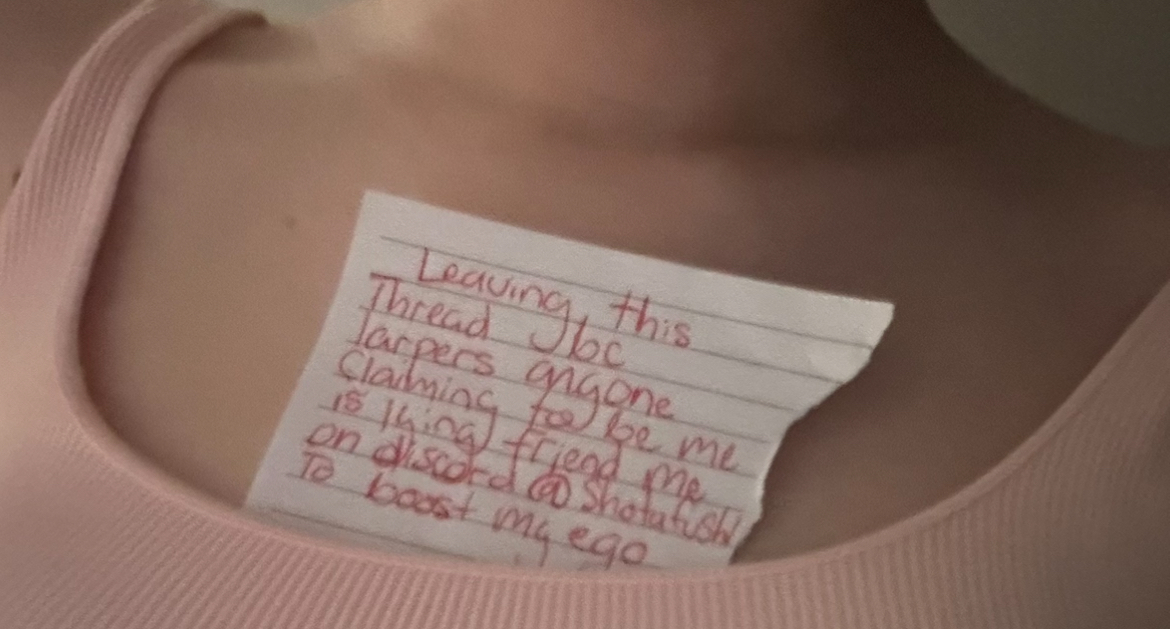 Leaving this
Thread bc
larpers anyone
Claiming to be me
is lying friend me
on discord @shotatushi
To boost my ego